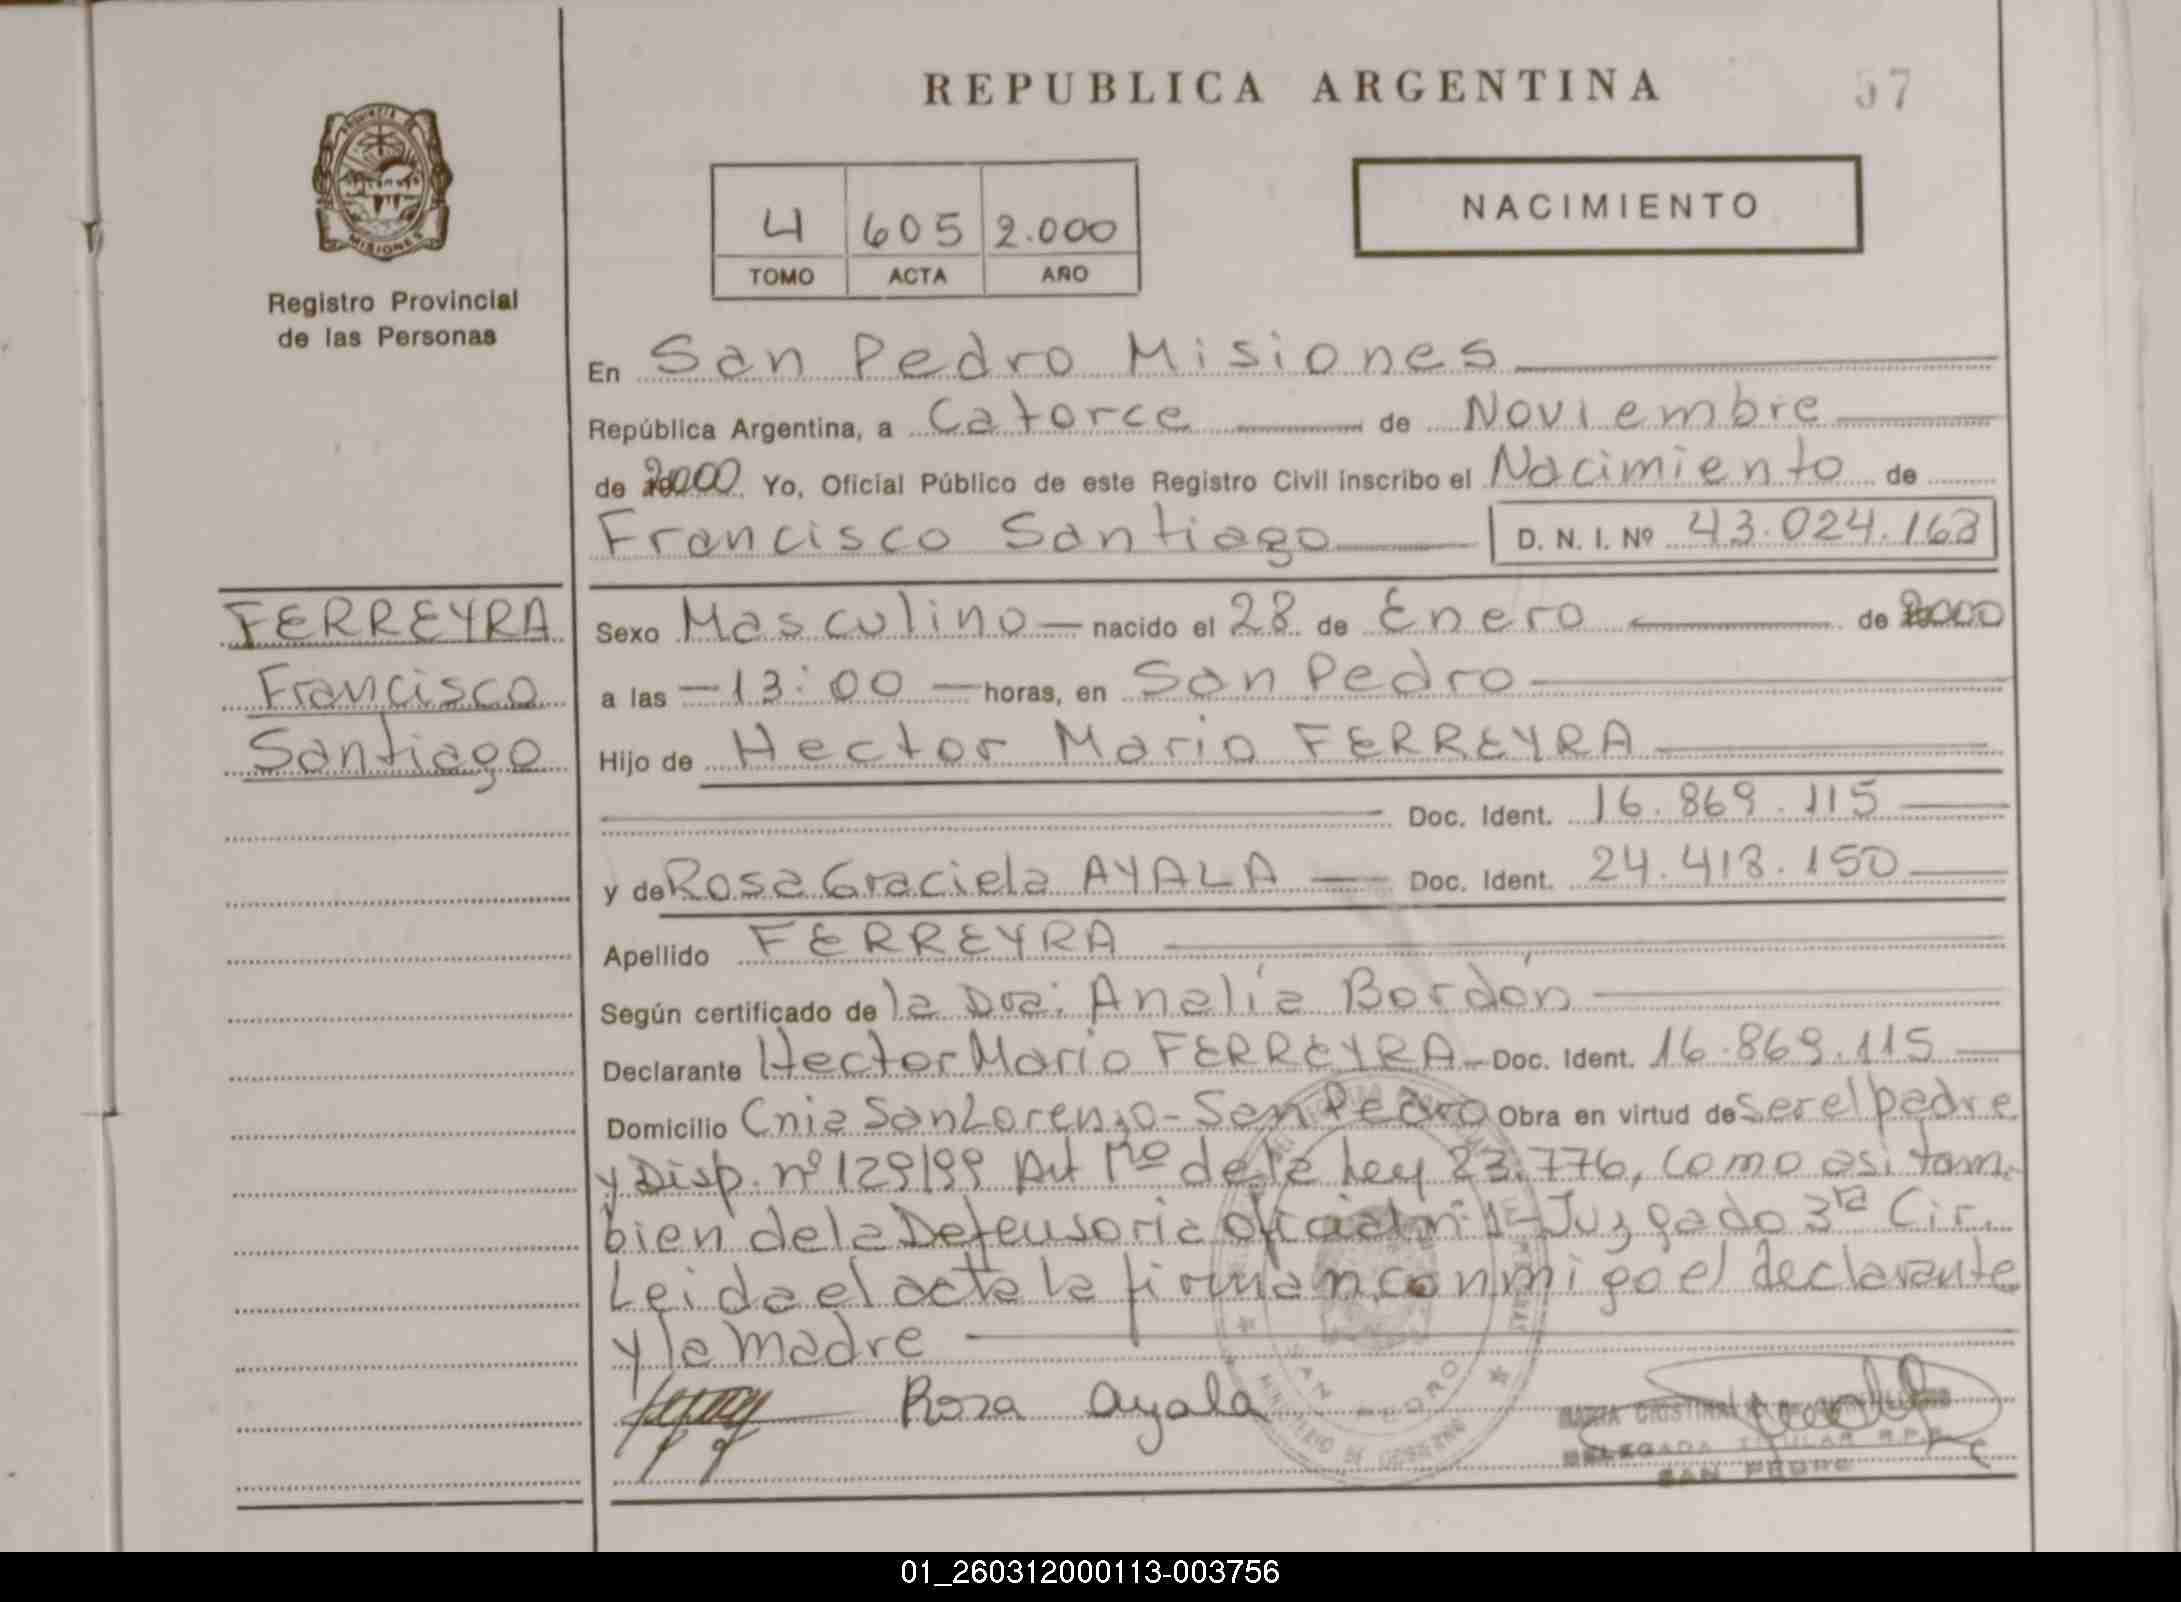 REPUBLICA ARGENTINA
57
PROVINCIA DE
MISIONES
Registro Provincial
de las Personas
4 605 2.000
TOMO ACTA AÑO
NACIMIENTO
En San Pedro Misiones
República Argentina, a Catorce de Noviembre
de 2000 Yo, Oficial Público de este Registro Civil inscribo el Nacimiento de
Francisco Santiago D. N. I. Nº 43.024.163
FERREYRA
Francisco
Santiago
Sexo Masculino nacido el 28 de Enero de 2000
a las 13:00 horas, en San Pedro
Hijo de Hector Mario FERREYRA
Doc. Ident. 16.869.115
y de Rosa Graciela AYALA Doc. Ident. 24.413.150
Apellido FERREYRA
Según certificado de la Dra. Analía Bordón
Declarante Hector Mario FERREYRA Doc. Ident. 16.869.115
Domicilio Cnia San Lorenzo - San Pedro Obra en virtud de ser el padre
y Disp. nº 129/99 Art 1º de la Ley 23.776, como asi tam-
bien de la Defensoria oficial nº 1 - Juzgado 3ra Cir.
Leida el acta la firman conmigo el declarante
y la madre
Rosa Ayala
SAN PEDRO
MINISTERIO DE GOBIERNO
MARIA CRISTINA
DELEGADA TITULAR R.P.P.
SAN PEDRO
01_260312000113-003756